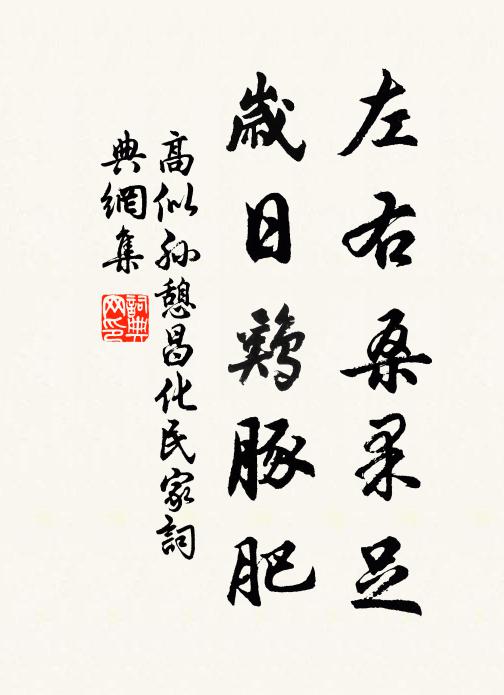 左右桑果足
歲日鷄豚肥
高似孙憩昌化民家詞
典網集
詞典
网印